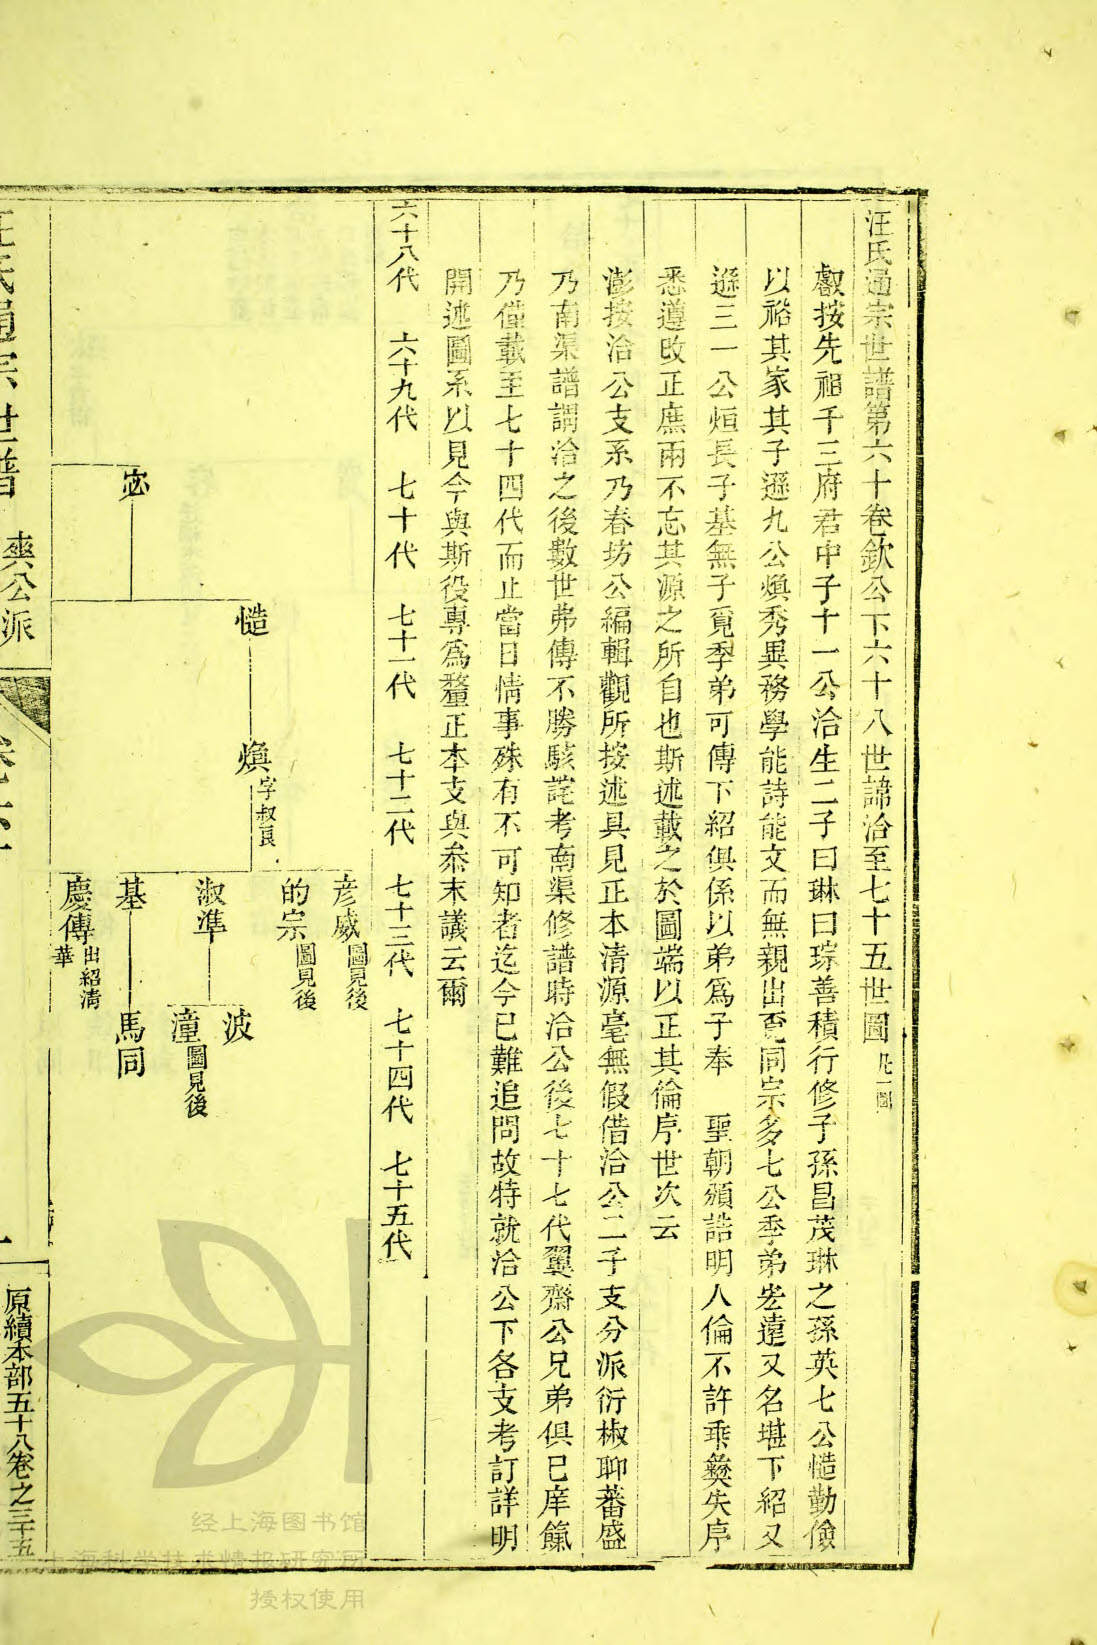 汪氏通宗世譜第六十卷欽公下六十八世諱洽至七十五世圖 凡一圖
叡按先祖千三府君中子十一公洽生二子曰琳曰琮善積行修子孫昌茂琳之孫英七公慥勤儉
以裕其家其子遜九公煥秀異務學能詩能文而無親出覓同宗多七公季弟宏達又名堪下紹又
遜三一公烜長子基無子覓季弟可傳下紹俱係以弟爲子奉 聖朝頒誥明人倫不許乖彝失序
悉遵改正庶兩不忘其源之所自也斯述載之於圖端以正其倫序世次云
澎按洽公支系乃春坊公編輯觀所按述具見正本清源毫無假借洽公二子支分派衍椒聊蕃盛
乃南渠譜謂洽之後數世弗傳不勝駭詫考南渠修譜時洽公後七十七代翼齋公兄弟俱已庠餼
乃僅載至七十四代而止當日情事殊有不可知者迄今已難追問故特就洽公下各支考訂詳明
開述圖系以見今與斯役專爲釐正本支與叅末議云爾
六十八代 六十九代 七十代 七十一代 七十二代 七十三代 七十四代 七十五代
彥威 圖見後
的宗 圖見後
慥
煥 字叔良
淑準
波
潼 圖見後
宓
基
馬同
慶傳 出紹清華
汪氏通宗世譜 爽公派 卷六十 一
原續本部五十八卷之三十五
经上海图书馆
上海科学技术情报研究所
授权使用